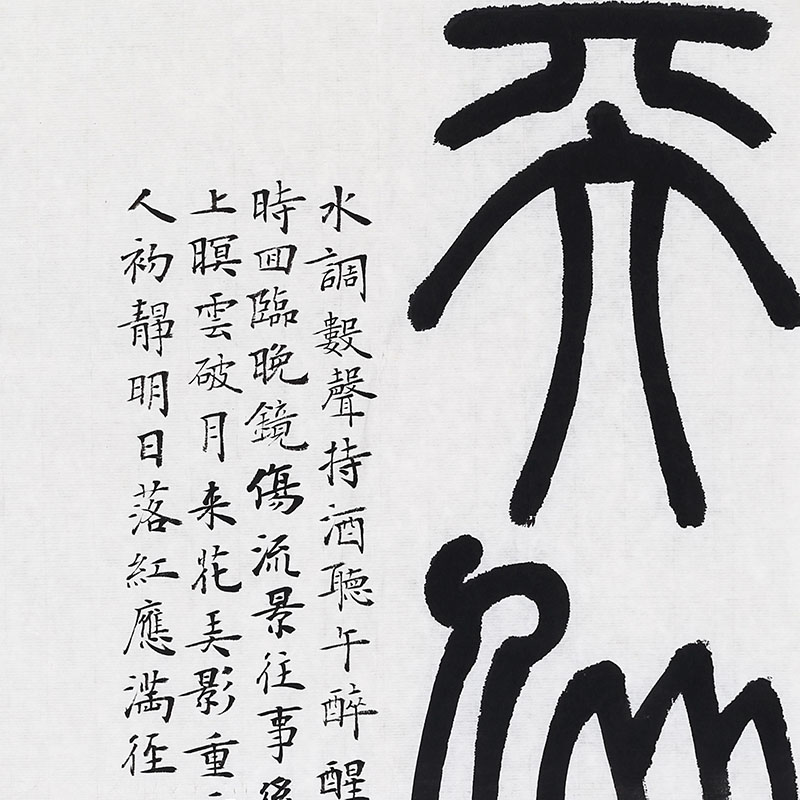 天
水調數聲持酒聽午醉醒
時囬臨晚鏡傷流景往事後
上瞑雲破月来花弄影重
人初靜明日落紅應滿徑